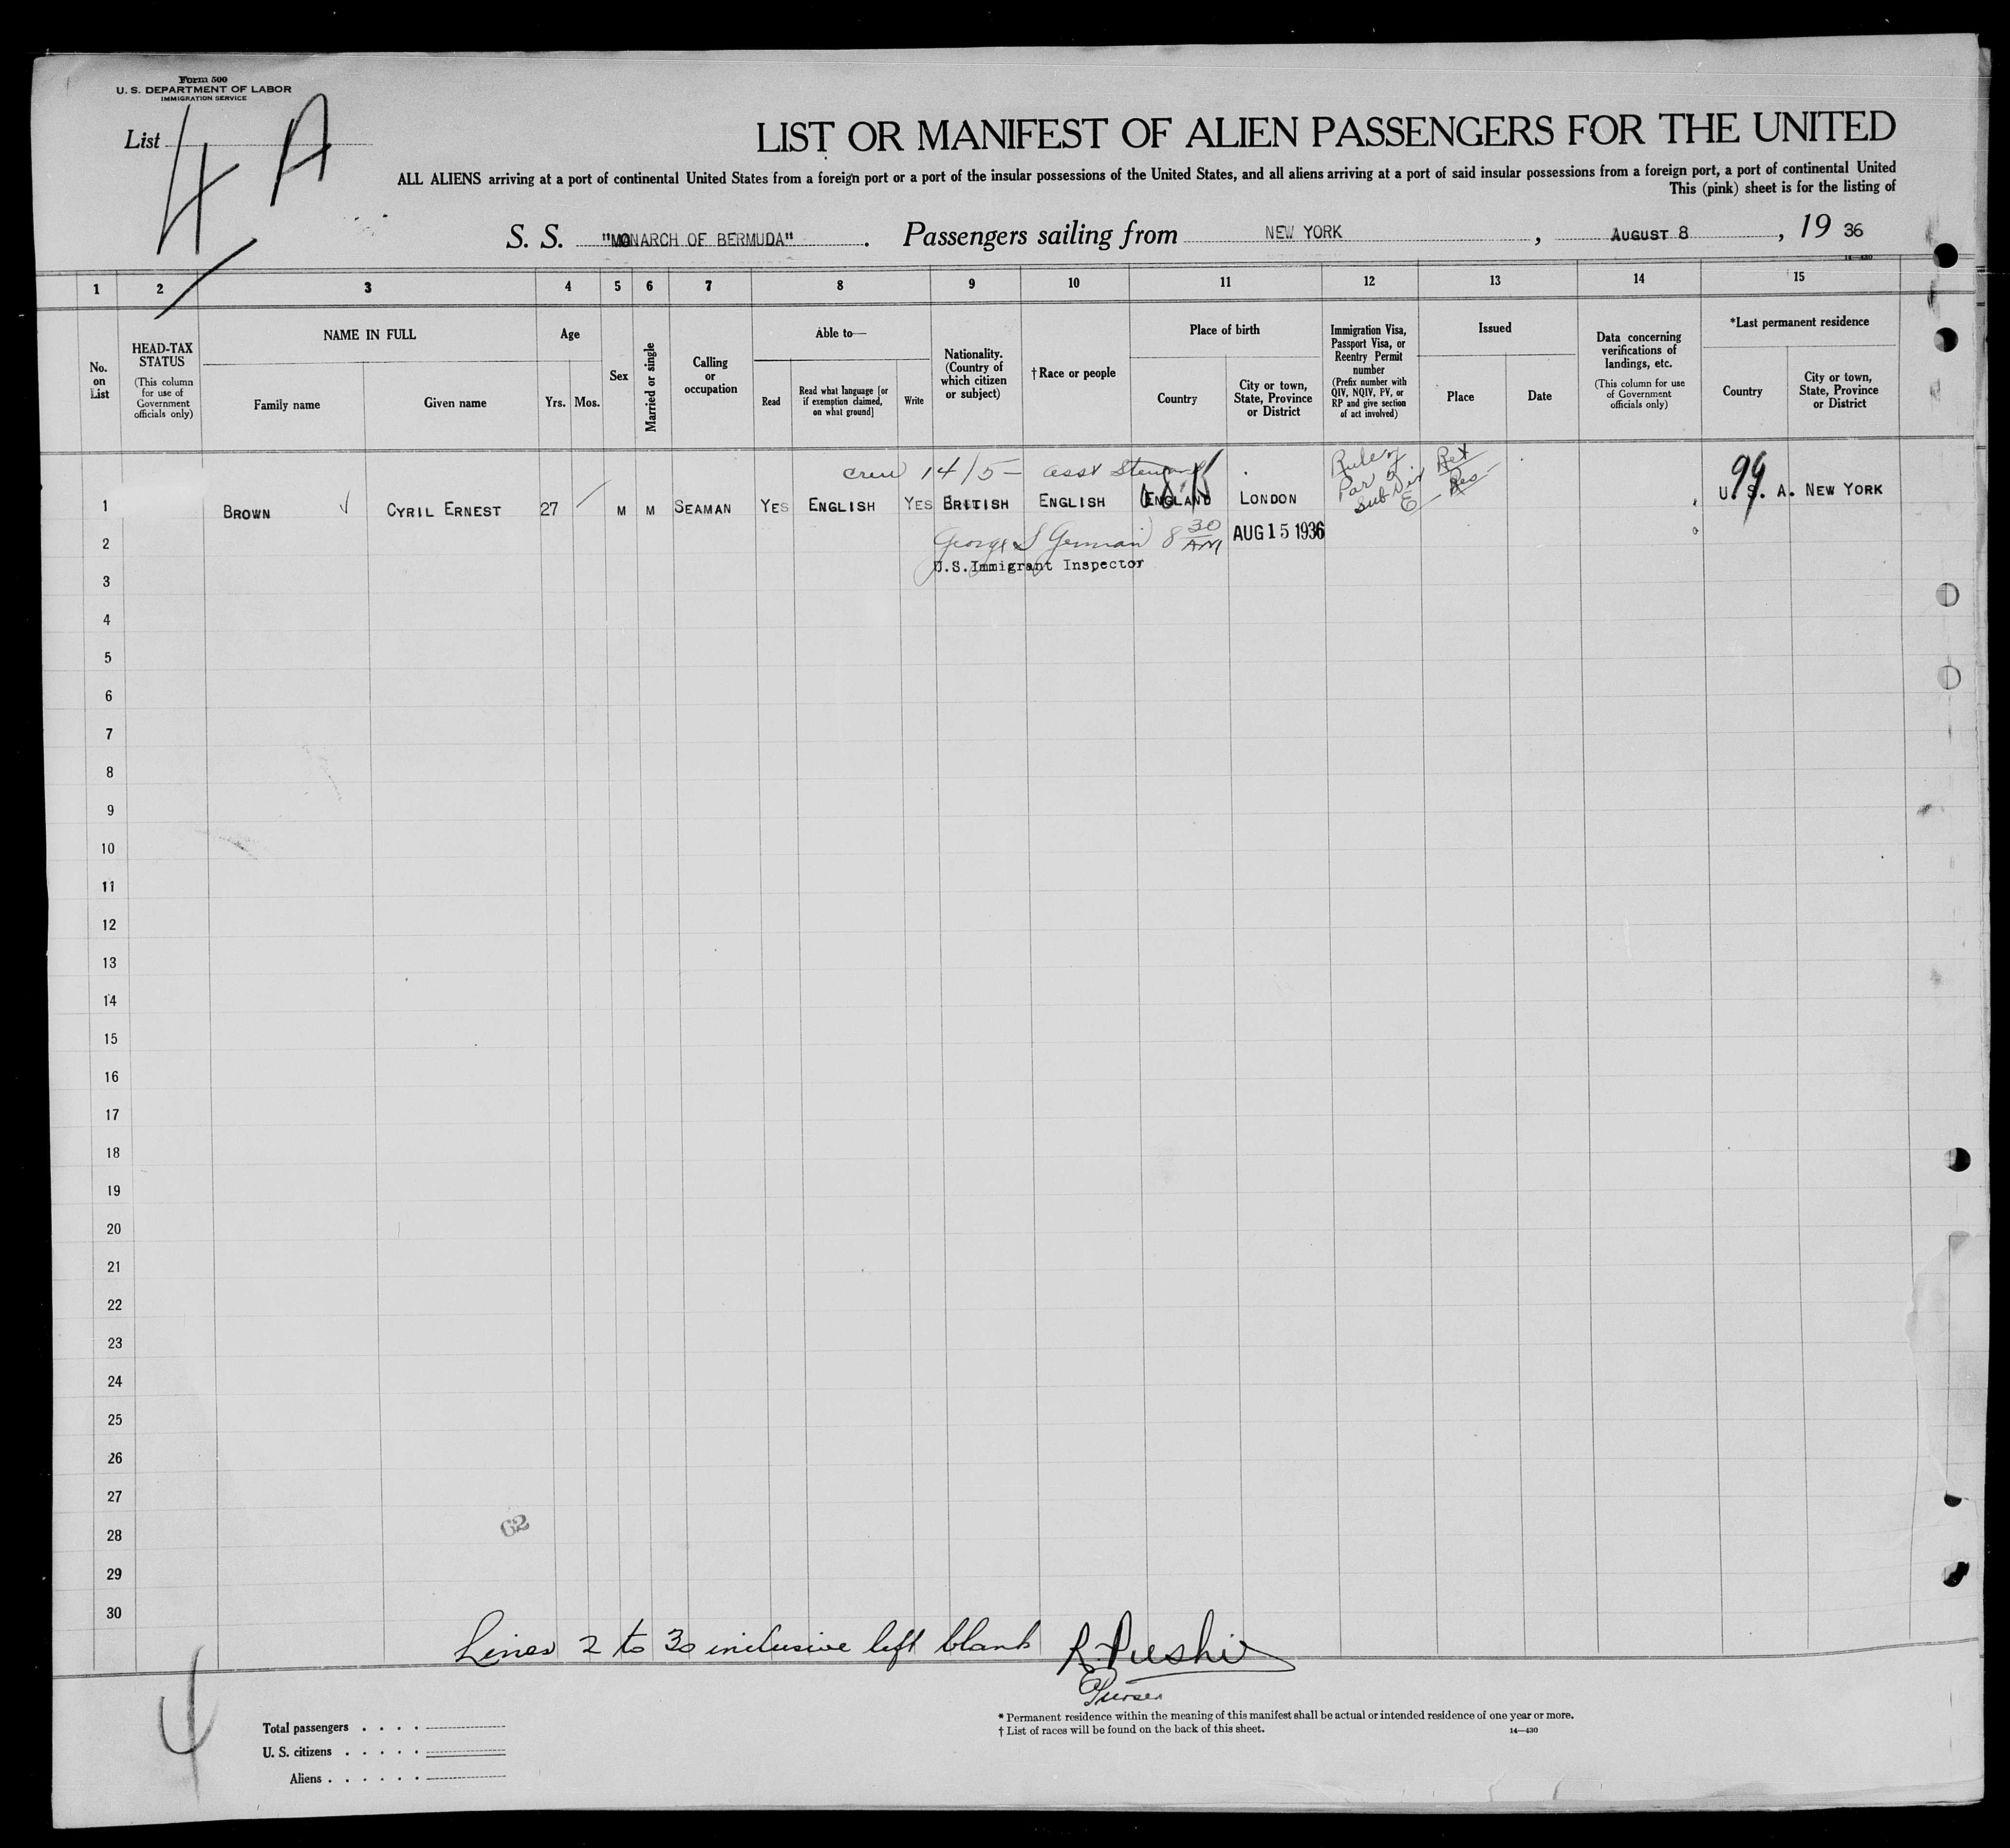 Form 500
U. S. DEPARTMENT OF LABOR
IMMIGRATION SERVICE
List 4 A
LIST OR MANIFEST OF ALIEN PASSENGERS FOR THE UNITED
ALL ALIENS arriving at a port of continental United States from a foreign port or a port of the insular possessions of the United States, and all aliens arriving at a port of said insular possessions from a foreign port, a port of continental United
This (pink) sheet is for the listing of
S. S. "MONARCH OF BERMUDA". Passengers sailing from NEW YORK, AUGUST 8, 19 36
14—430
1 2 3 4 5 6 7 8 9 10 11 12 13 14 15
No. on List
HEAD-TAX STATUS
(This column for use of Government officials only)
NAME IN FULL
Family name
Given name
Age
Yrs. Mos.
Sex
Married or single
Calling or occupation
Able to—
Read
Read what language [or if exemption claimed, on what ground]
Write
Nationality. (Country of which citizen or subject)
†Race or people
Place of birth
Country
City or town, State, Province or District
Immigration Visa, Passport Visa, or Reentry Permit number
(Prefix number with QIV, NQIV, PV, or RP and give section of act involved)
Issued
Place
Date
Data concerning verifications of landings, etc.
(This column for use of Government officials only)
*Last permanent residence
Country
City or town, State, Province or District
crew 14/5 - asst Steward
Rule 7
Par 5
Sub Div
E
Ret
Res
99
1 BROWN CYRIL ERNEST 27 M M SEAMAN YES ENGLISH YES BRITISH ENGLISH ENGLAND LONDON U. S. A. NEW YORK
2 George S German 8 30 AM AUG 15 1936
3 U.S.Immigrant Inspector
4
5
6
7
8
9
10
11
12
13
14
15
16
17
18
19
20
21
22
23
24
25
26
27
28
62
29
30
Lines 2 to 30 inclusive left blank
Purser
4
Total passengers
U. S. citizens
Aliens
* Permanent residence within the meaning of this manifest shall be actual or intended residence of one year or more.
† List of races will be found on the back of this sheet.
14—430